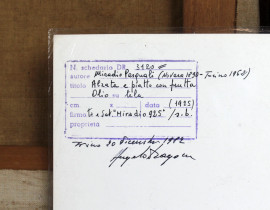 N. schedario DR 3120
autore Miradio Pasquali (Novara 1890 - Torino 1960)
titolo Alzata e piatto con frutta
Olio su tela
cm. x data (1925)
firma To e Sd. "Miradio 925" / a. b.
proprietà
Torino 20 Dicembre 1982
Angelo Dragone